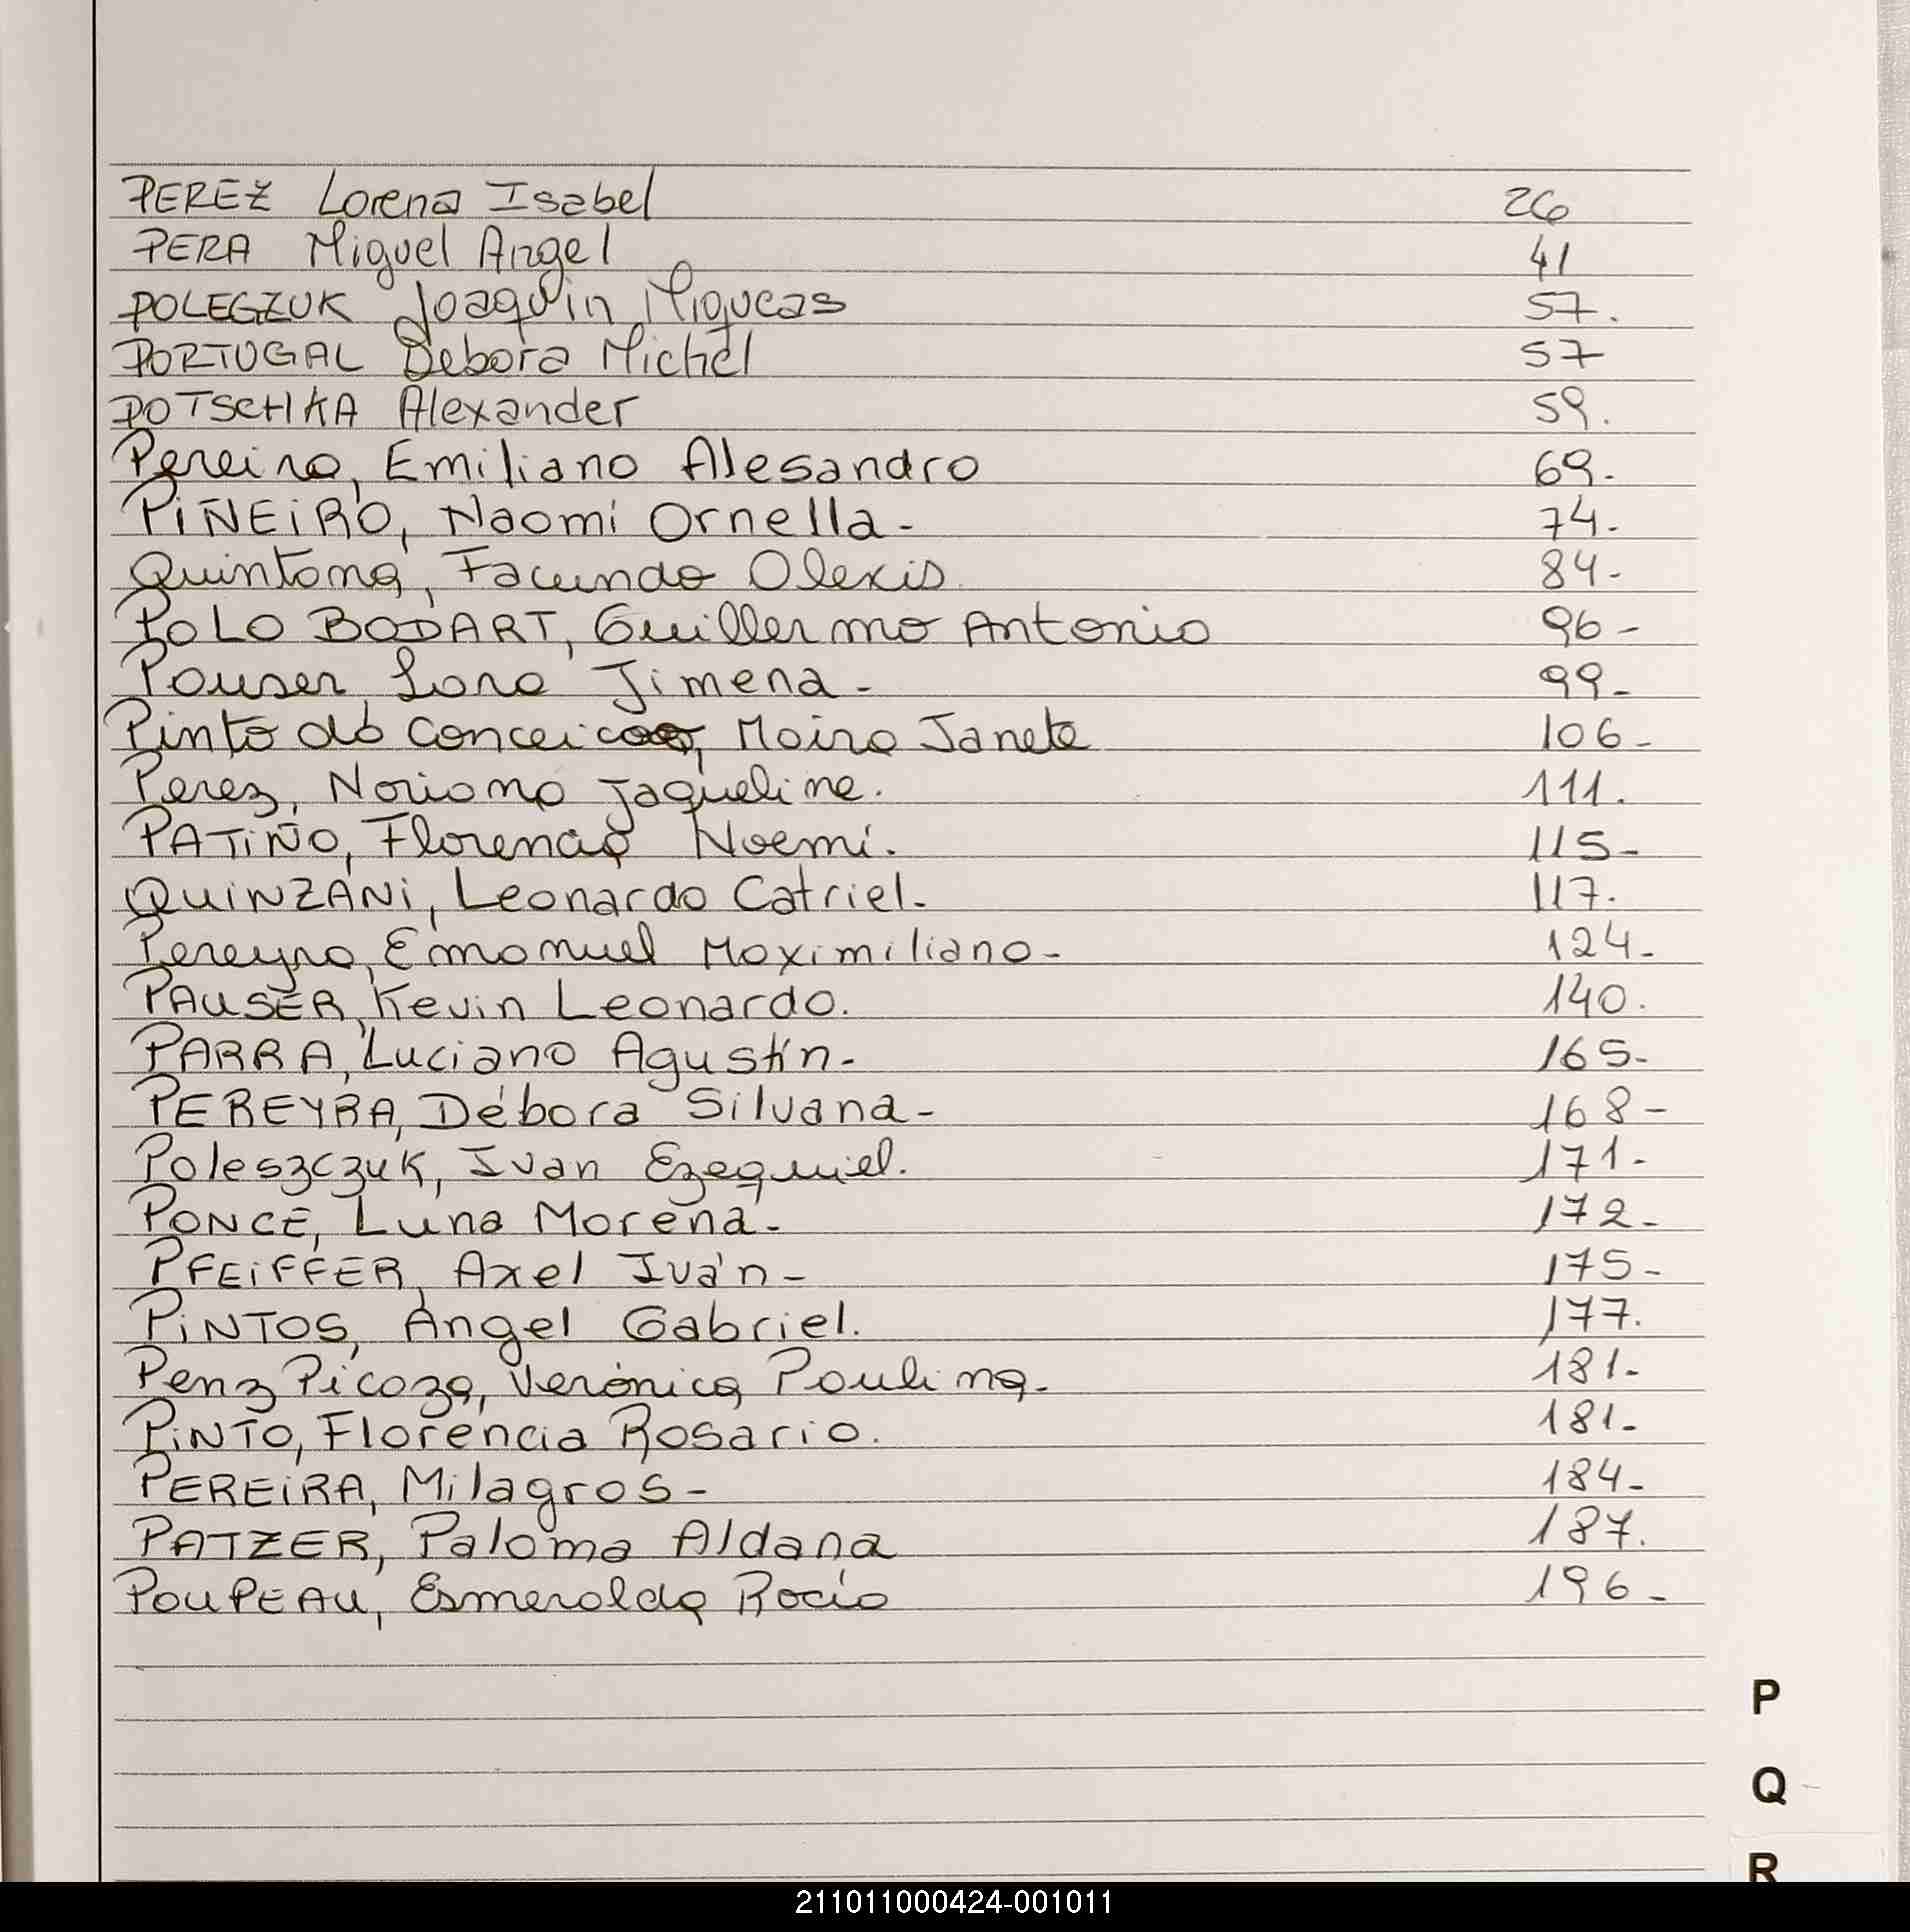 PEREZ Lorena Isabel 26
PERA Miguel Angel 41
POLEGZUK Joaquin Miqueas 57.
PORTUGAL Debora Michel 57
POTSCHKA Alexander 59.
Pereira, Emiliano Alesandro 69.
PIÑEIRO, Naomi Ornella- 74-
Quintana, Facundo Alexis 84-
POLO BODART, Guillermo Antonio 96-
Pauser Lara Jimena- 99-
Pinto da Conceicao, Maira Janete 106-
Perez, Noriana Jaqueline. 111.
PATIÑO, Florencia Noemi. 115-
QUINZANI, Leonardo Catriel. 117.
Pereyra, Emanuel Maximiliano- 124-
PAUSER, Kevin Leonardo. 140.
PARRA, Luciano Agustín- 165-
PEREYRA, Débora Silvana- 168-
Poleszczuk, Ivan Ezequiel. 171-
PONCE, Luna Morena- 172-
PFEIFFER, Axel Iván- 175-
PINTOS, Ángel Gabriel. 177.
Penz Picaza, Verónica Paulina. 181-
PINTO, Florencia Rosario. 181-
PEREIRA, Milagros- 184-
PATZER, Paloma Aldana 187.
POUPEAU, Esmeralda Rocío 196-
P
Q
R
211011000424-001011